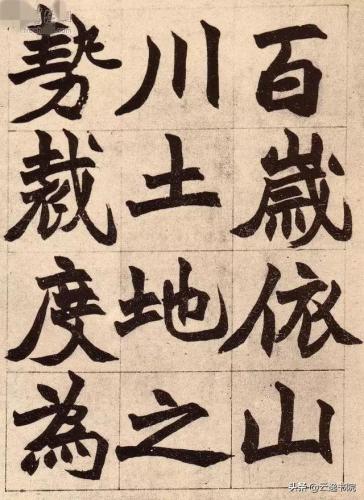 百歲依山
川土地之
勢裁度為
头条@云逸书院